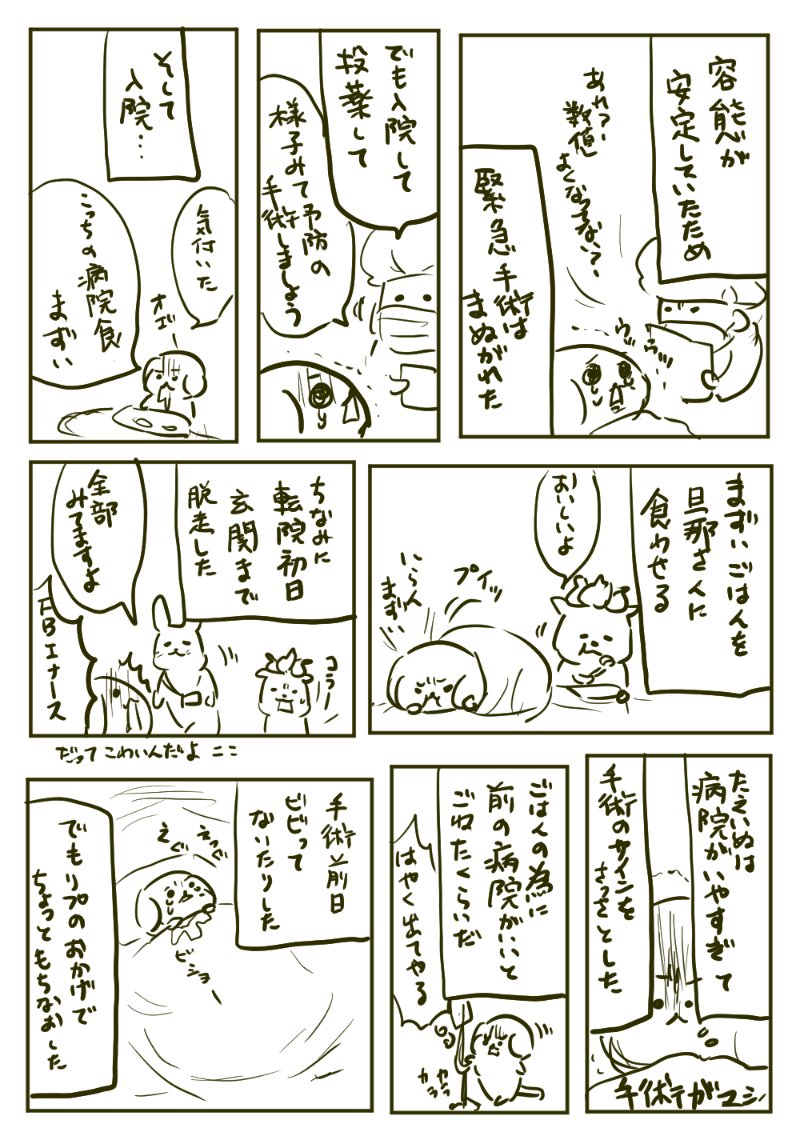 容態が
安定していたため
あれ？
数値
よくなってない？
緊急手術は
まぬがれた
ウッ
でも入院して
投薬して
様子みて予防の
手術しましょう
そして
入院…
気付いた
こっちの病院食
まずい
オエー
まずいごはんを
旦那さんに
食わせる
おいしいよ
プイッ
いらん
まずい
ちなみに
転院初日
玄関まで
脱走した
全部
みてますよ
コラー
FBIナース
だって こわいんだよ ここ
たえいぬは
病院がいやすぎて
手術のサインを
さっさとした
手術がマシ
ごはんの為に
前の病院がいいと
ごねたくらいだ
はやく出てやる
ガラ
ガラ
手術前日
ビビって
ないたりした
えっぐ
えぐ
ビショー
でもリプのおかげで
ちょっともちなおした